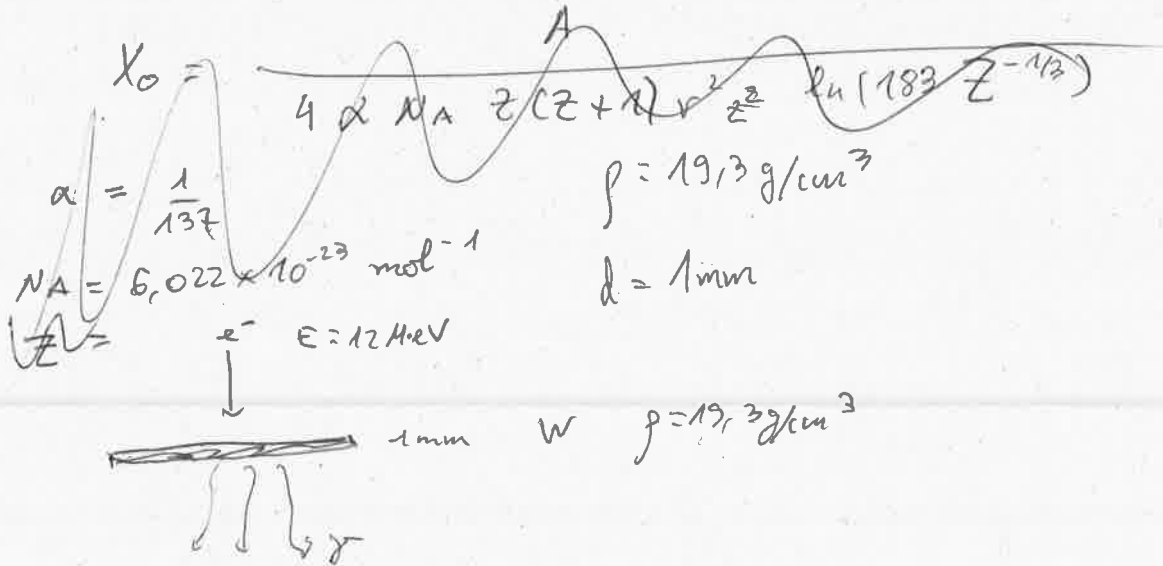 X₀ = A / 4 α N_A Z(Z+1) r² z² ln(183 Z^{-1/3})
α = 1/137
ρ = 19,3 g/cm³
N_A = 6,022 × 10^{-23} mol^{-1}
d = 1mm
Z =
e⁻ E = 12 MeV
1mm W ρ = 19,3 g/cm³
γ